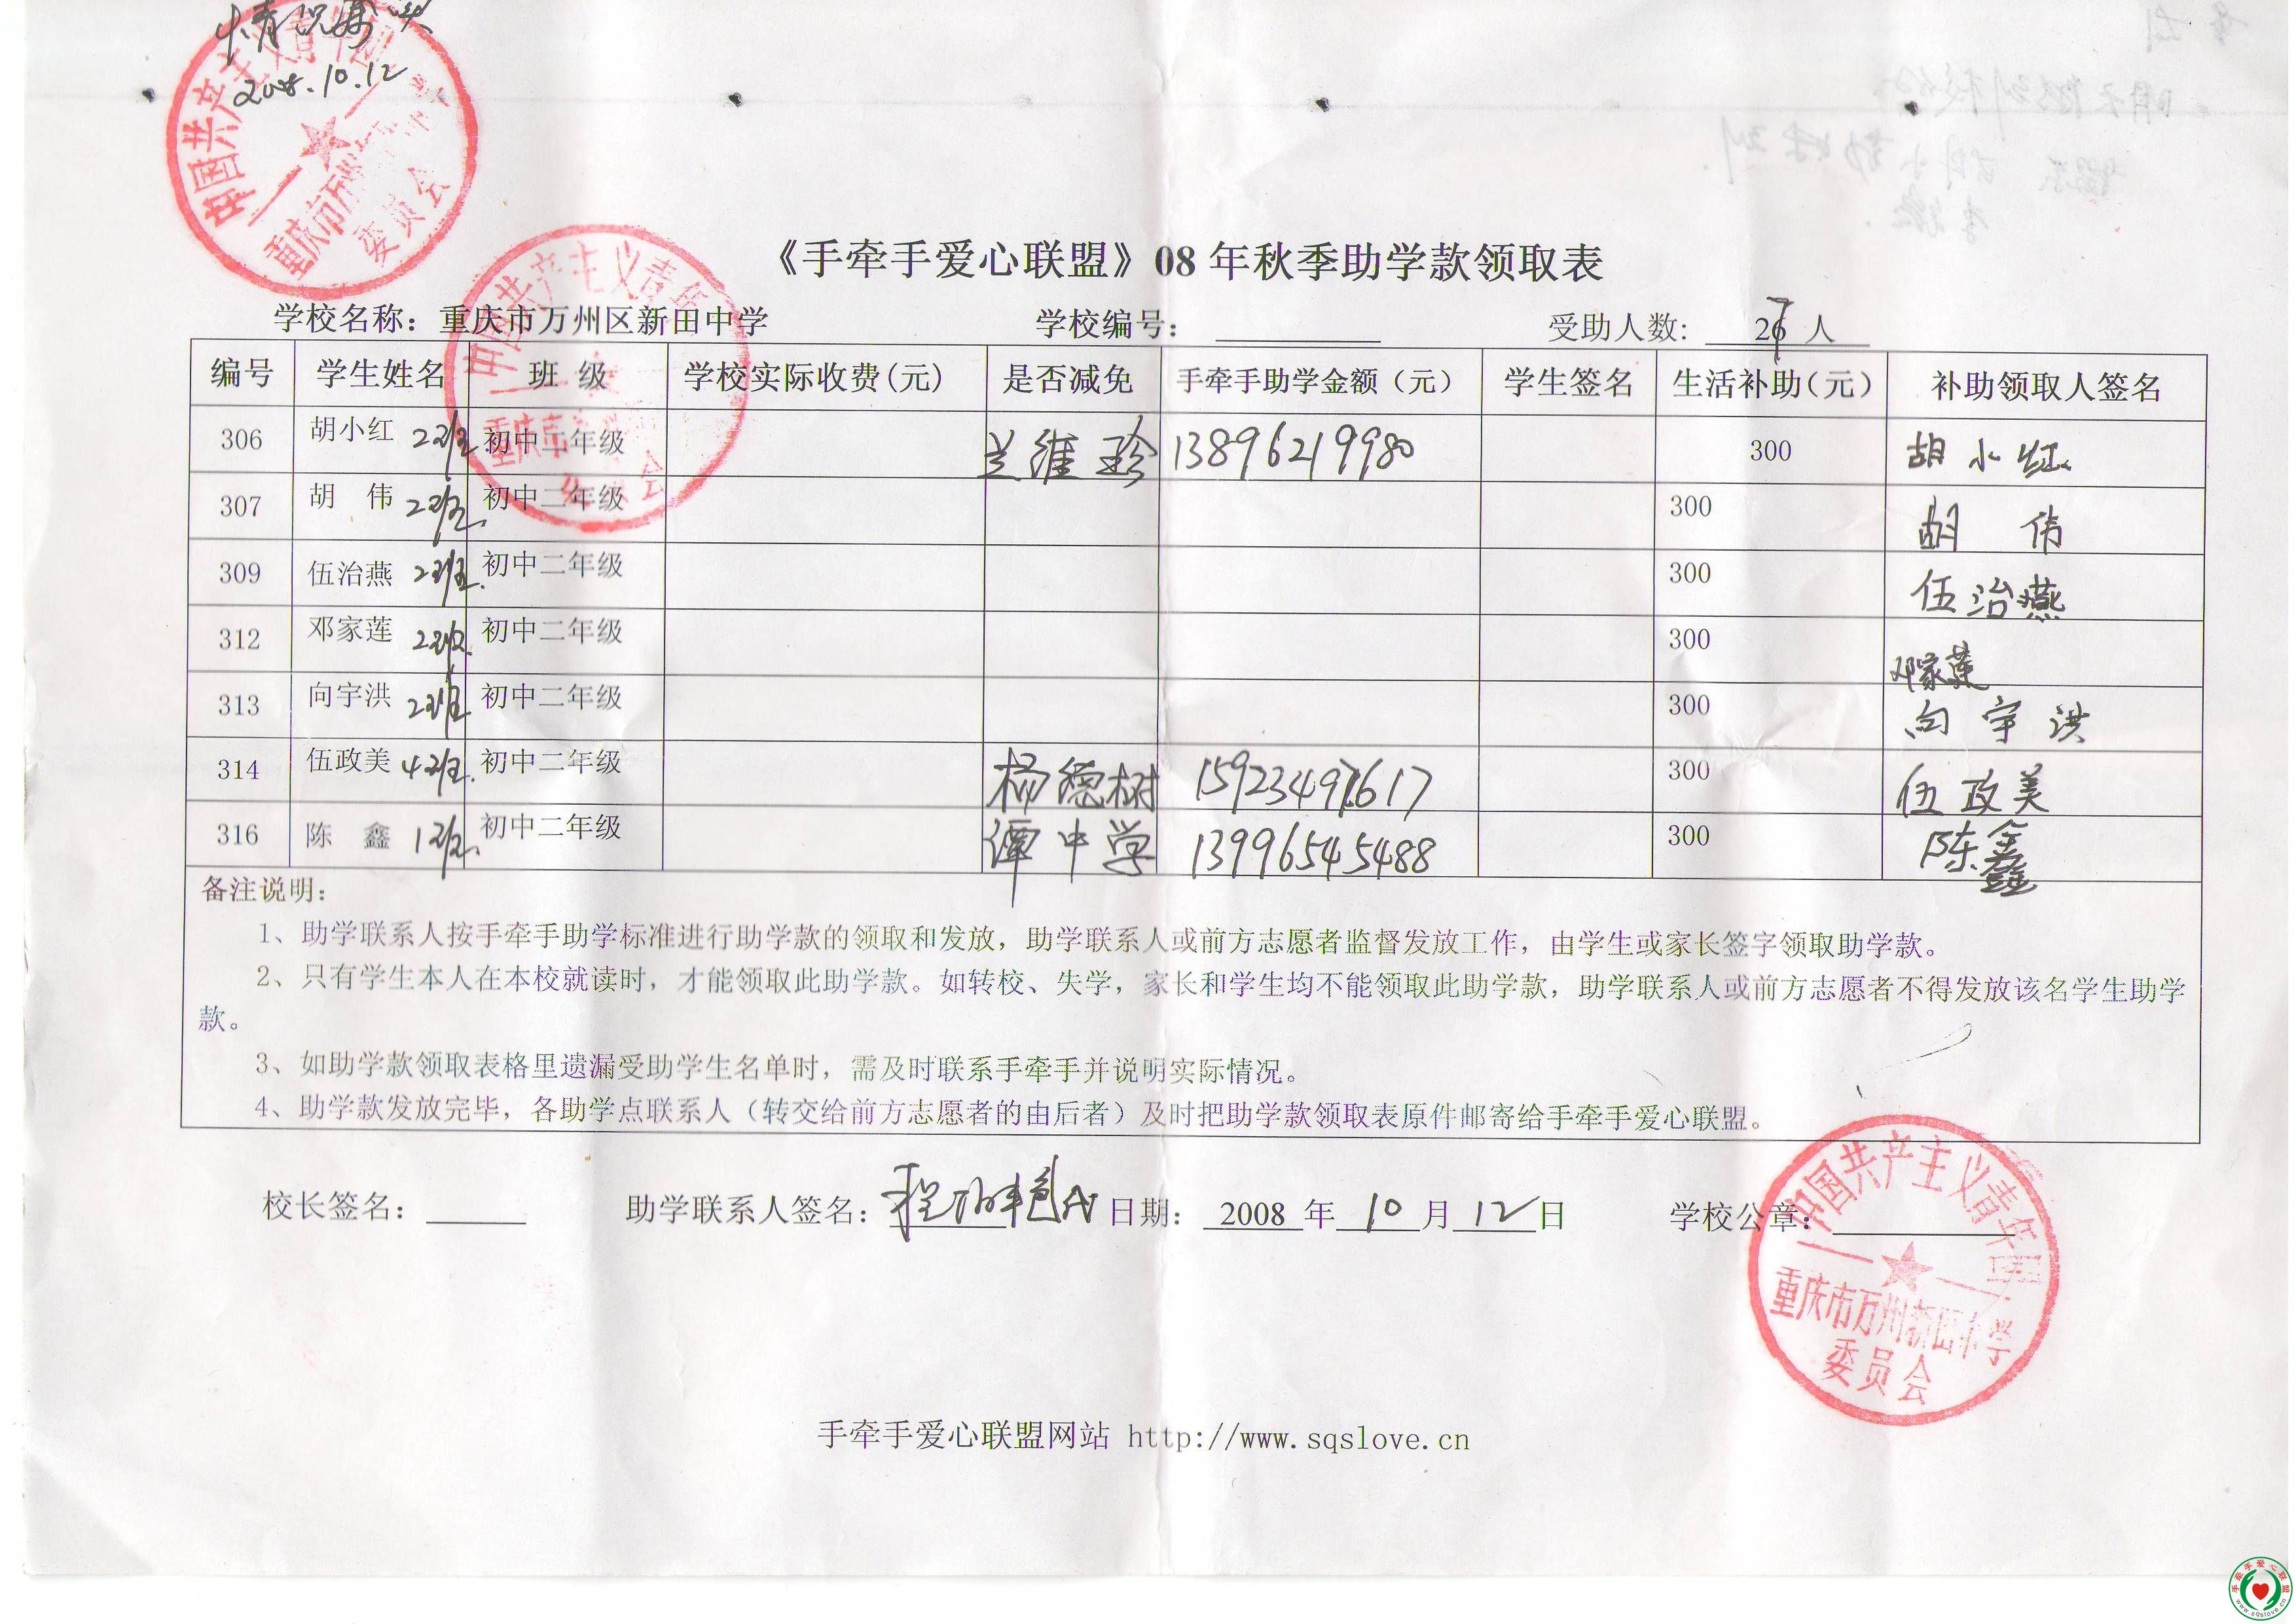 情况属实
2008.10.12
中国共产主义青年团
重庆市万州新田中学
委员会
《手牵手爱心联盟》08 年秋季助学款领取表
学校名称：重庆市万州区新田中学 学校编号： 受助人数： 26 7 人
编号 学生姓名 班 级 学校实际收费(元) 是否减免 手牵手助学金额（元） 学生签名 生活补助(元) 补助领取人签名
306 胡小红 2班. 初中二年级 兰维珍 13896219980 300 胡小红
307 胡 伟 2班. 初中二年级 300 胡 伟
309 伍治燕 2班. 初中二年级 300 伍治燕
312 邓家莲 2班. 初中二年级 300 邓家莲
313 向宇洪 2班 初中二年级 300 向宇洪
314 伍政美 4班. 初中二年级 杨德树 300 伍政美
316 陈 鑫 1班. 初中二年级 谭中学 13996545488 300 陈鑫
备注说明：
1、助学联系人按手牵手助学标准进行助学款的领取和发放，助学联系人或前方志愿者监督发放工作，由学生或家长签字领取助学款。
2、只有学生本人在本校就读时，才能领取此助学款。如转校、失学，家长和学生均不能领取此助学款，助学联系人或前方志愿者不得发放该名学生助学
款。
3、如助学款领取表格里遗漏受助学生名单时，需及时联系手牵手并说明实际情况。
4、助学款发放完毕，各助学点联系人（转交给前方志愿者的由后者）及时把助学款领取表原件邮寄给手牵手爱心联盟。
校长签名： 助学联系人签名： 日期： 2008 年 10 月 12 日 学校公章：
中国共产主义青年团
重庆市万州新田中学
委员会
手牵手爱心联盟网站 http://www.sqslove.cn
手牵手爱心联盟
www.sqslove.cn